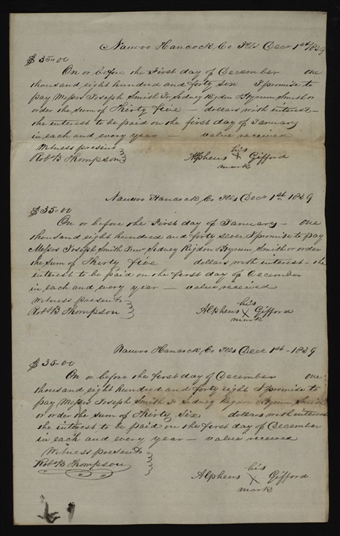 Nauvoo Hancock Co Ills Decr 1st 1839
$35.00
On or before the First day of December one
thousand eight hundred and forty six I promise to
pay Messrs Joseph Smith Sidney Rigdon Hyrum Smith or
order the sum of Thirty five — dollars with interest
the interest to be paid on the first day of January
in each and every year — value received
Witness present
Robt B Thompson
his
Alpheus X Gifford
mark
Nauvoo Hancock Co Ills Decr 1st 1839
$35.00
On or before the First day of January — one
thousand eight hundred and forty seven I promise to pay
Messrs Joseph Smith Junr Sidney Rigdon Hyrum Smith or order
the sum of Thirty five dollars with interest – the
interest to be paid on the first day of December
in each and every year — value received
Witness present
Robt B Thompson
his
Alpheus X Gifford
mark
Nauvoo Hancock Co Ills Decr 1st – 1839
$35.00
On or before the first day of December one
thousand eight hundred and forty eight I promise to
pay Messrs Joseph Smith Sidney Rigdon Hyrum Smith
or order the sum of Thirty Six dollars with interest
the interest to be paid on the first day of December
in each and every year — value received
Witness present
Robt B Thompson
his
Alpheus X Gifford
mark